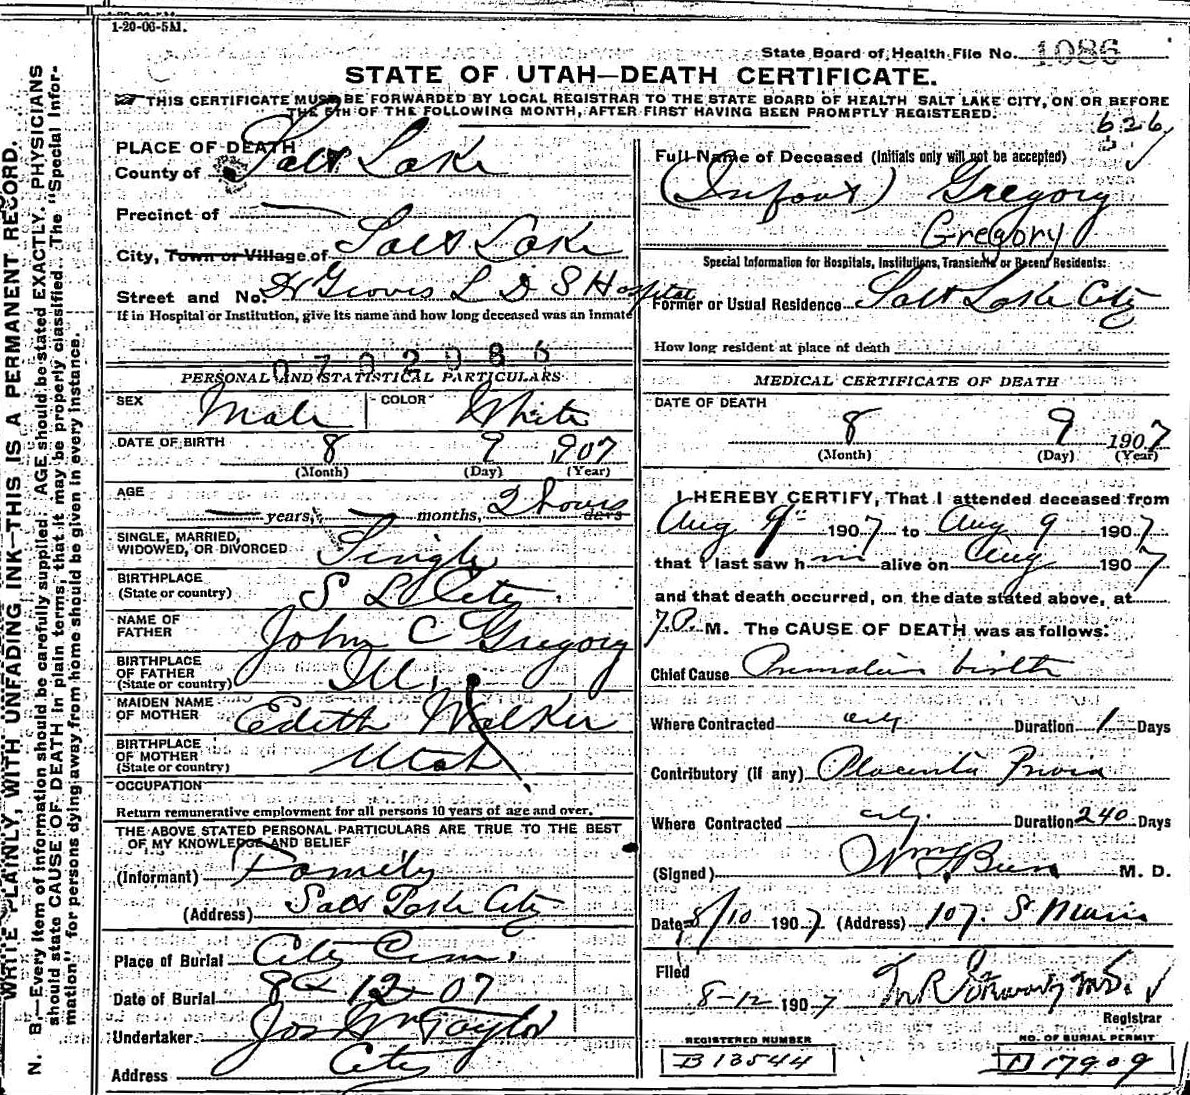 1-20-06-5M.
State Board of Health File No. 1086
STATE OF UTAH—DEATH CERTIFICATE.
THIS CERTIFICATE MUST BE FORWARDED BY LOCAL REGISTRAR TO THE STATE BOARD OF HEALTH SALT LAKE CITY, ON OR BEFORE
THE 5TH OF THE FOLLOWING MONTH, AFTER FIRST HAVING BEEN PROMPTLY REGISTERED.
626
PLACE OF DEATH
County of Salt Lake
Precinct of —
City, Town or Village of Salt Lake
Street and No. Dr Groves L D S Hospital
If in Hospital or Institution, give its name and how long deceased was an Inmate
0702086
PERSONAL AND STATISTICAL PARTICULARS
SEX Male COLOR White
DATE OF BIRTH 8 9 1907
(Month) (Day) (Year)
AGE — years, — months, 2 hours days
SINGLE, MARRIED,
WIDOWED, OR DIVORCED Single
BIRTHPLACE
(State or country) S L City
NAME OF
FATHER John C Gregory
BIRTHPLACE
OF FATHER
(State or country) Ill.
MAIDEN NAME
OF MOTHER Edith Walker
BIRTHPLACE
OF MOTHER
(State or country) Utah
OCCUPATION
Return remunerative employment for all persons 10 years of age and over.
THE ABOVE STATED PERSONAL PARTICULARS ARE TRUE TO THE BEST
OF MY KNOWLEDGE AND BELIEF
(Informant) Family
(Address) Salt Lake City
Place of Burial City Cem.
Date of Burial 8-12-07
Undertaker Jos Wm Taylor
Address City
Full Name of Deceased (Initials only will not be accepted)
(Infant) Gregory
Gregory
Special Information for Hospitals, Institutions, Transients or Recent Residents:
Former or Usual Residence Salt Lake City
How long resident at place of death
MEDICAL CERTIFICATE OF DEATH
DATE OF DEATH
8 9 1907
(Month) (Day) (Year)
I HEREBY CERTIFY, That I attended deceased from
Aug 9th 1907 to Aug 9 1907
that I last saw h im alive on Aug 1907
and that death occurred, on the date stated above, at
7 P. M. The CAUSE OF DEATH was as follows:
Chief Cause Premature birth
Where Contracted city Duration 1 Days
Contributory (if any) Placenta Previa
Where Contracted city. Duration 240 Days
(Signed) M. D.
Date 8/10 1907 (Address) 107. S Main
Filed
8-12 1907
Registrar
REGISTERED NUMBER
B 13544
NO. OF BURIAL PERMIT
D 17909
WRITE PLAINLY, WITH UNFADING INK—THIS IS A PERMANENT RECORD.
N. B.—Every item of information should be carefully supplied. AGE should be stated EXACTLY. PHYSICIANS
should state CAUSE OF DEATH in plain terms, that it may be properly classified. The "Special Infor-
mation" for persons dying away from home should be given in every instance.